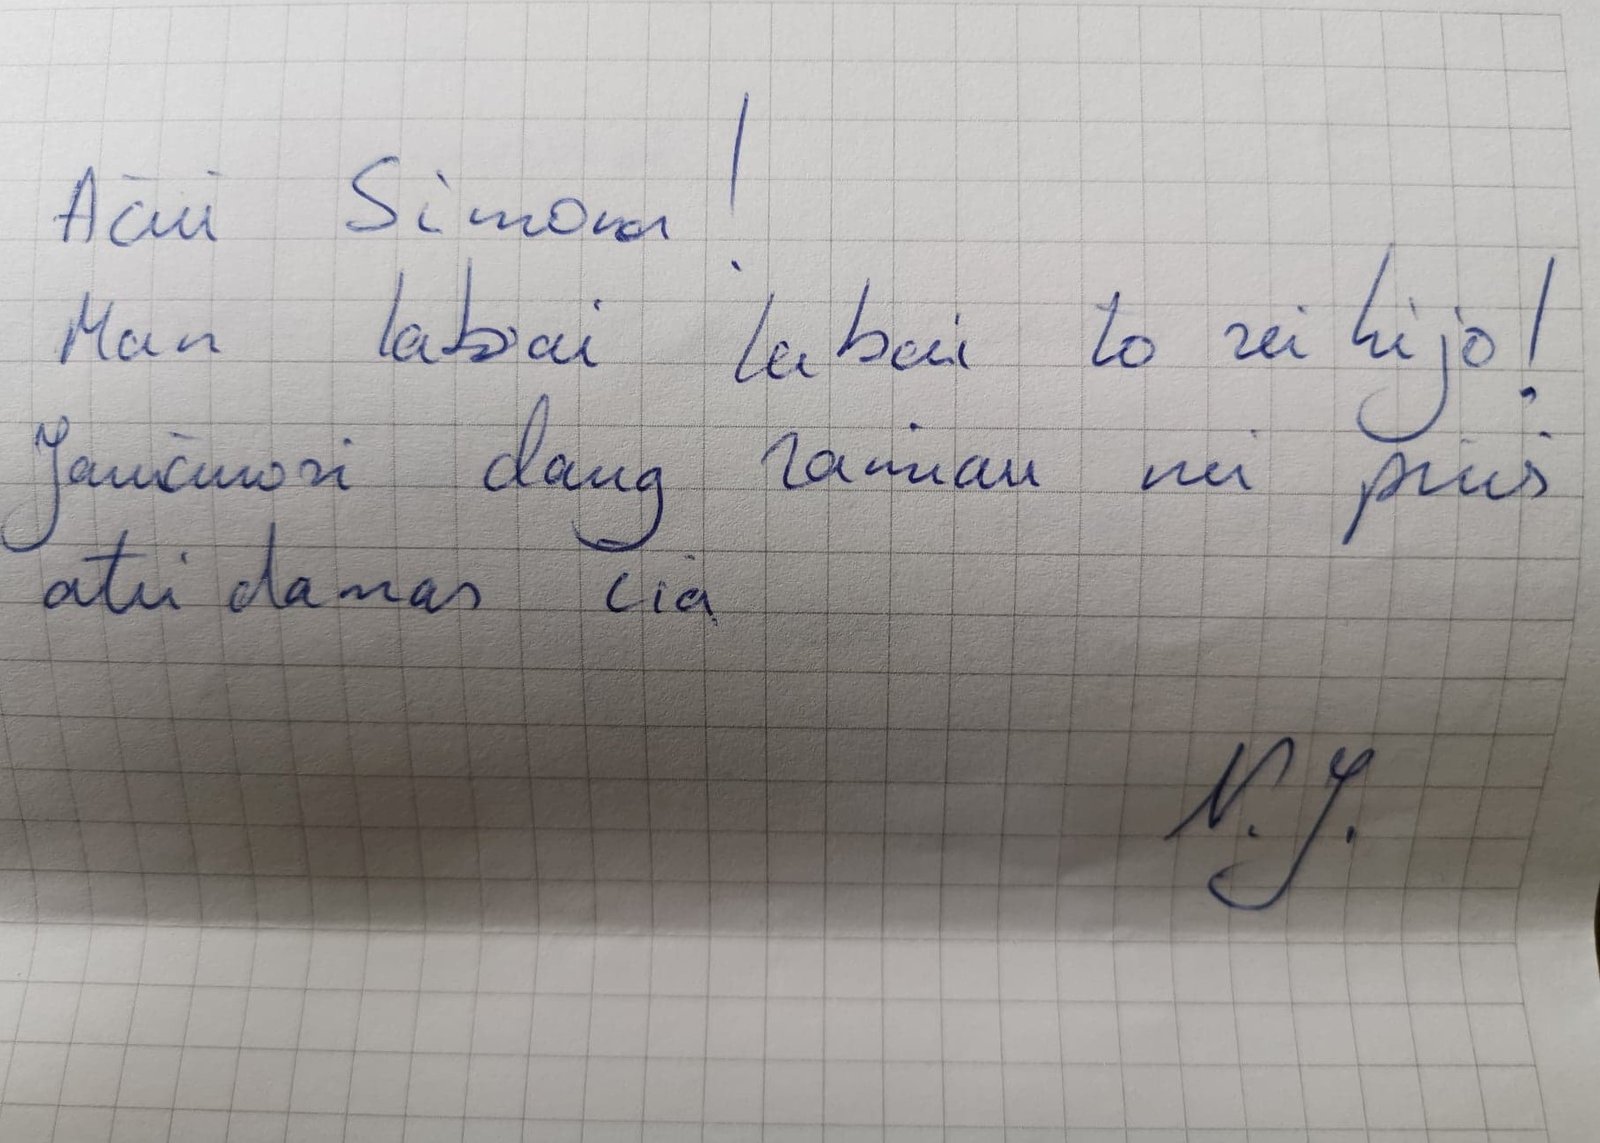 Ačiū Simona!
Man labai labai to reikėjo!
Jaučiuosi daug ramiau nei prieš
ateidamas čia
N. J.